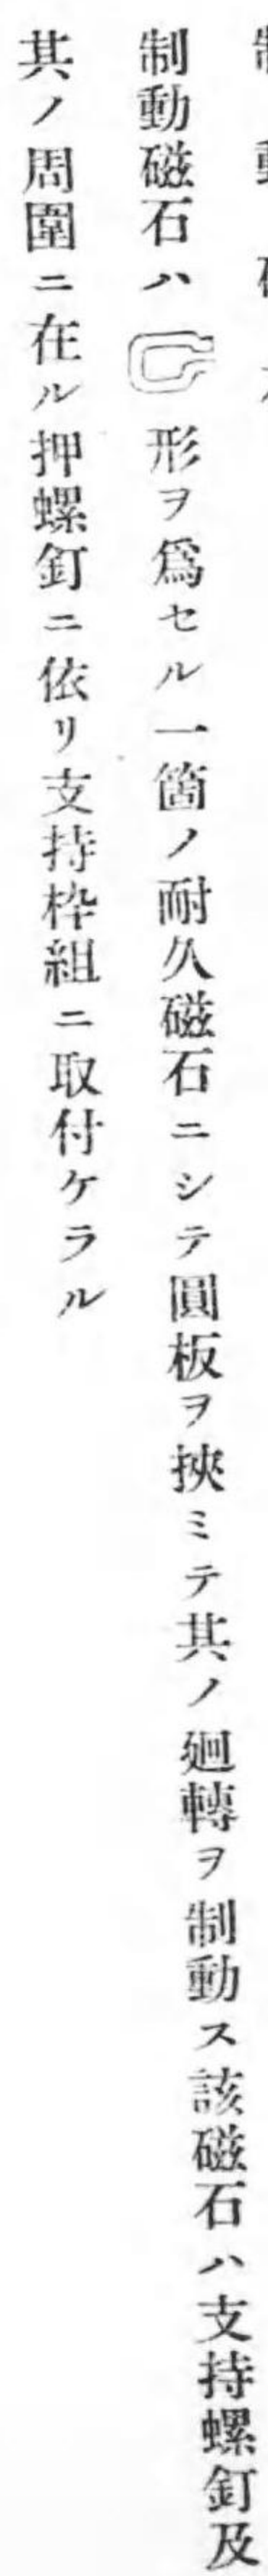 制動磁石ハ形ヲ爲セル一箇ノ耐久磁石ニシテ圓板ヲ挾ミテ其ノ廻轉ヲ制動ス該磁石ハ支持螺釘及
其ノ周圍ニ在ル押螺釘ニ依リ支持枠組ニ取付ケラル